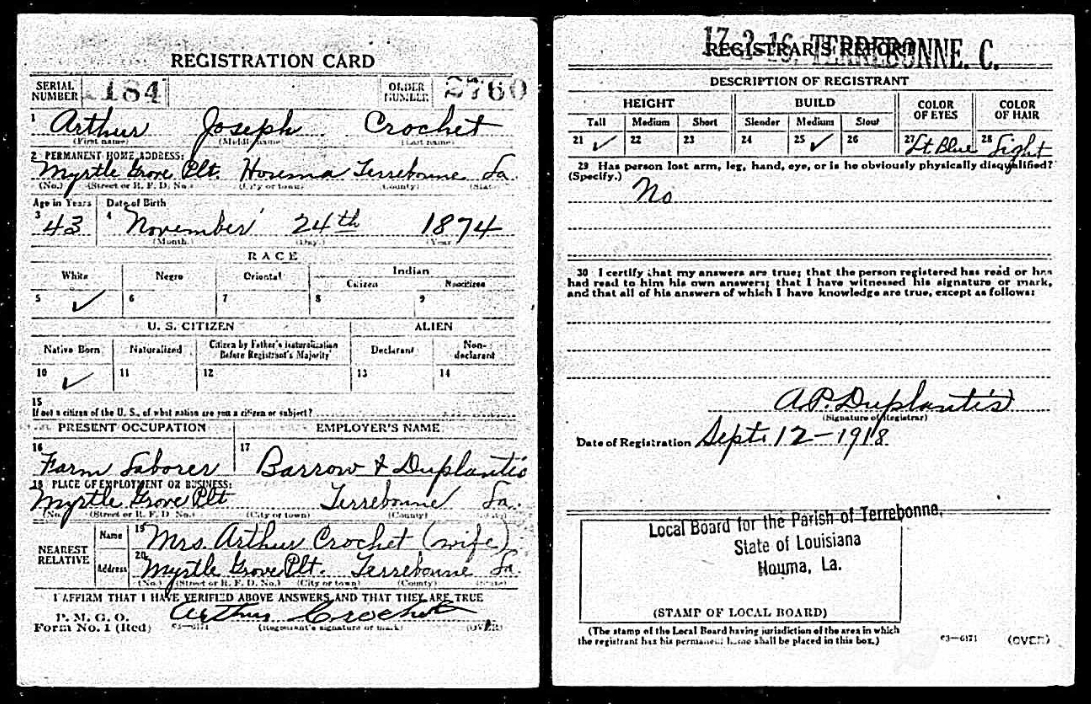 REGISTRATION CARD
SERIAL NUMBER 184 ORDER NUMBER 2760
1 Arthur Joseph Crochet
(First name) (Middle name) (Last name)
2 PERMANENT HOME ADDRESS:
Myrtle Grove Plt. Houma Terrebonne La.
(No.) (Street or R. F. D. No.) (City or town) (County) (State)
Age in Years Date of Birth
3 43 4 November 24th 1874
(Month) (Day) (Year)
RACE
White Negro Oriental Indian
Citizen Noncitizen
5 ✓ 6 7 8 9
U. S. CITIZEN ALIEN
Native Born Naturalized Citizen by Father's Naturalization Before Registrant's Majority Declarant Non-declarant
10 ✓ 11 12 13 14
15
If not a citizen of the U. S., of what nation are you a citizen or subject?
PRESENT OCCUPATION EMPLOYER'S NAME
16 Farm Laborer 17 Barrow & Duplantis
18 PLACE OF EMPLOYMENT OR BUSINESS:
Myrtle Grove Plt Terrebonne La.
(No.) (Street or R. F. D. No.) (City or town) (County) (State)
NEAREST RELATIVE Name 19 Mrs. Arthur Crochet (wife)
Address 20 Myrtle Grove Plt. Terrebonne La.
(No.) (Street or R. F. D. No.) (City or town) (County) (State)
I AFFIRM THAT I HAVE VERIFIED ABOVE ANSWERS AND THAT THEY ARE TRUE
P. M. G. O.
Form No. 1 (Red) 03—6171 Arthur Crochet
(Registrant's signature or mark) (OVER)
17 2 16 TERREBONNE. C.
REGISTRAR'S REPORT
DESCRIPTION OF REGISTRANT
HEIGHT BUILD COLOR OF EYES COLOR OF HAIR
Tall Medium Short Slender Medium Stout
21 ✓ 22 23 24 25 ✓ 26 27 Lt Blue 28 Light
29 Has person lost arm, leg, hand, eye, or is he obviously physically disqualified?
(Specify.)
No
30 I certify that my answers are true; that the person registered has read or has
had read to him his own answers; that I have witnessed his signature or mark,
and that all of his answers of which I have knowledge are true, except as follows:
A.P. Duplantis
(Signature of Registrar)
Date of Registration Sept. 12-1918
Local Board for the Parish of Terrebonne,
State of Louisiana
Houma, La.
(STAMP OF LOCAL BOARD)
(The stamp of the Local Board having jurisdiction of the area in which
the registrant has his permanent home shall be placed in this box.)
03—6171 (OVER)